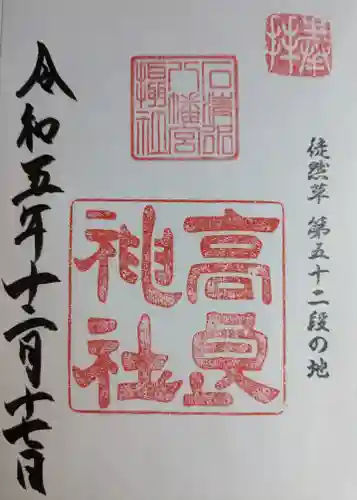 奉拝
徒然草 第五十二段の地
石清水
八幡宮
攝社
高良
神社
令和五年十二月十七日